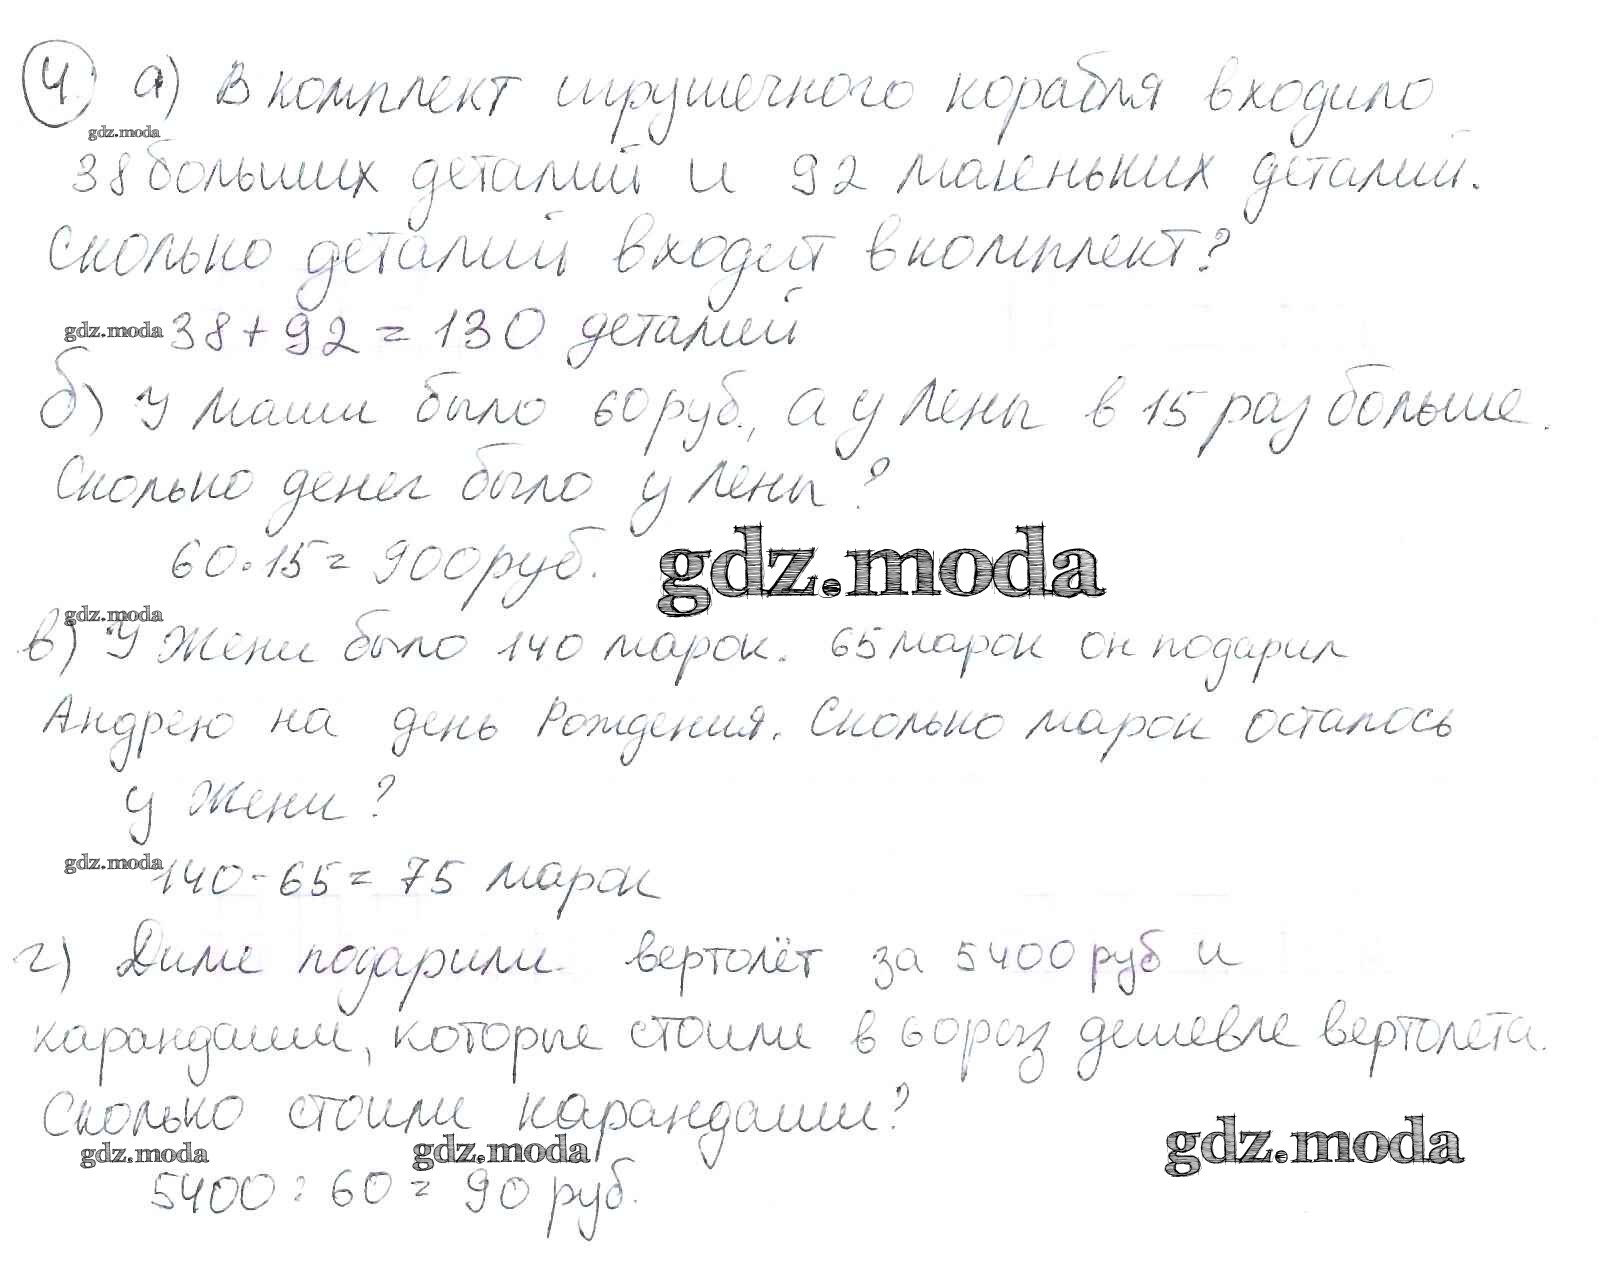 4. а) В комплект игрушечного корабля входило
gdz.moda
38 больших деталий и 92 маленьких деталий.
Сколько деталий входит в комплект?
gdz.moda 38 + 92 = 130 деталий
б) У Маши было 60 руб., а у Лены в 15 раз больше.
Сколько денег было у Лены?
60 · 15 = 900 руб. gdz.moda
gdz.moda
в) У Жени было 140 марок. 65 марок он подарил
Андрею на день Рождения. Сколько марок осталось
у Жени?
gdz.moda 140 - 65 = 75 марок
г) Диме подарили вертолёт за 5400 руб и
карандаши, которые стоили в 60 раз дешевле вертолета.
Сколько стоили карандаши?
gdz.moda gdz.moda gdz.moda
5400 : 60 = 90 руб.